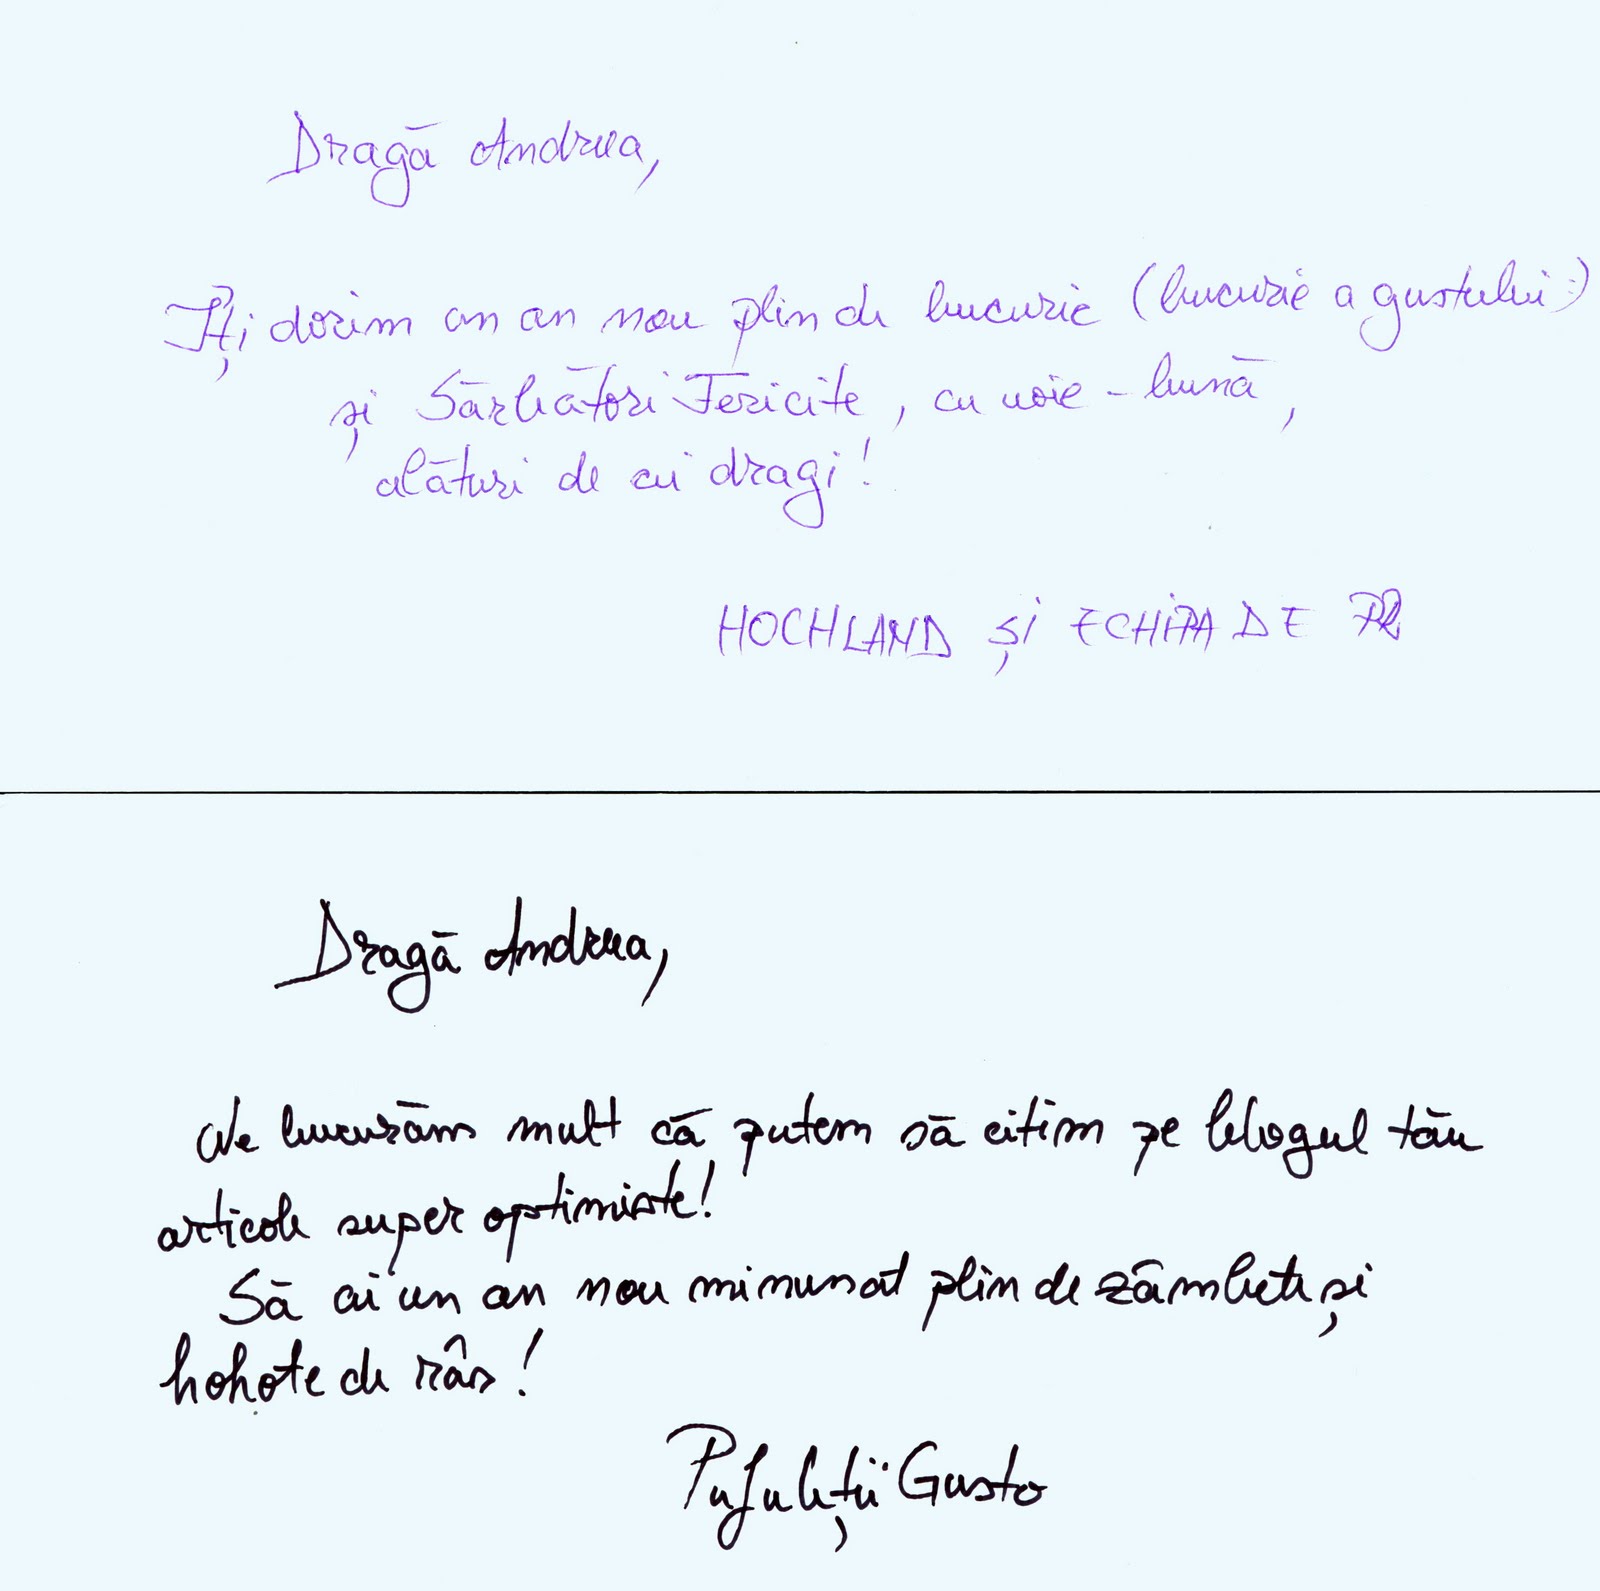 Dragă Andreea,
Îți dorim un an nou plin de bucurie (bucurie a gustului :)
și Sărbători Fericite, cu voie-bună,
alături de cei dragi!
HOCHLAND ȘI ECHIPA DE PR
Dragă Andreea,
Ne bucurăm mult că putem să citim pe blogul tău
articole super optimiste!
Să ai un an nou minunat plin de zâmbete și
hohote de râs!
Pufuleții Gusto